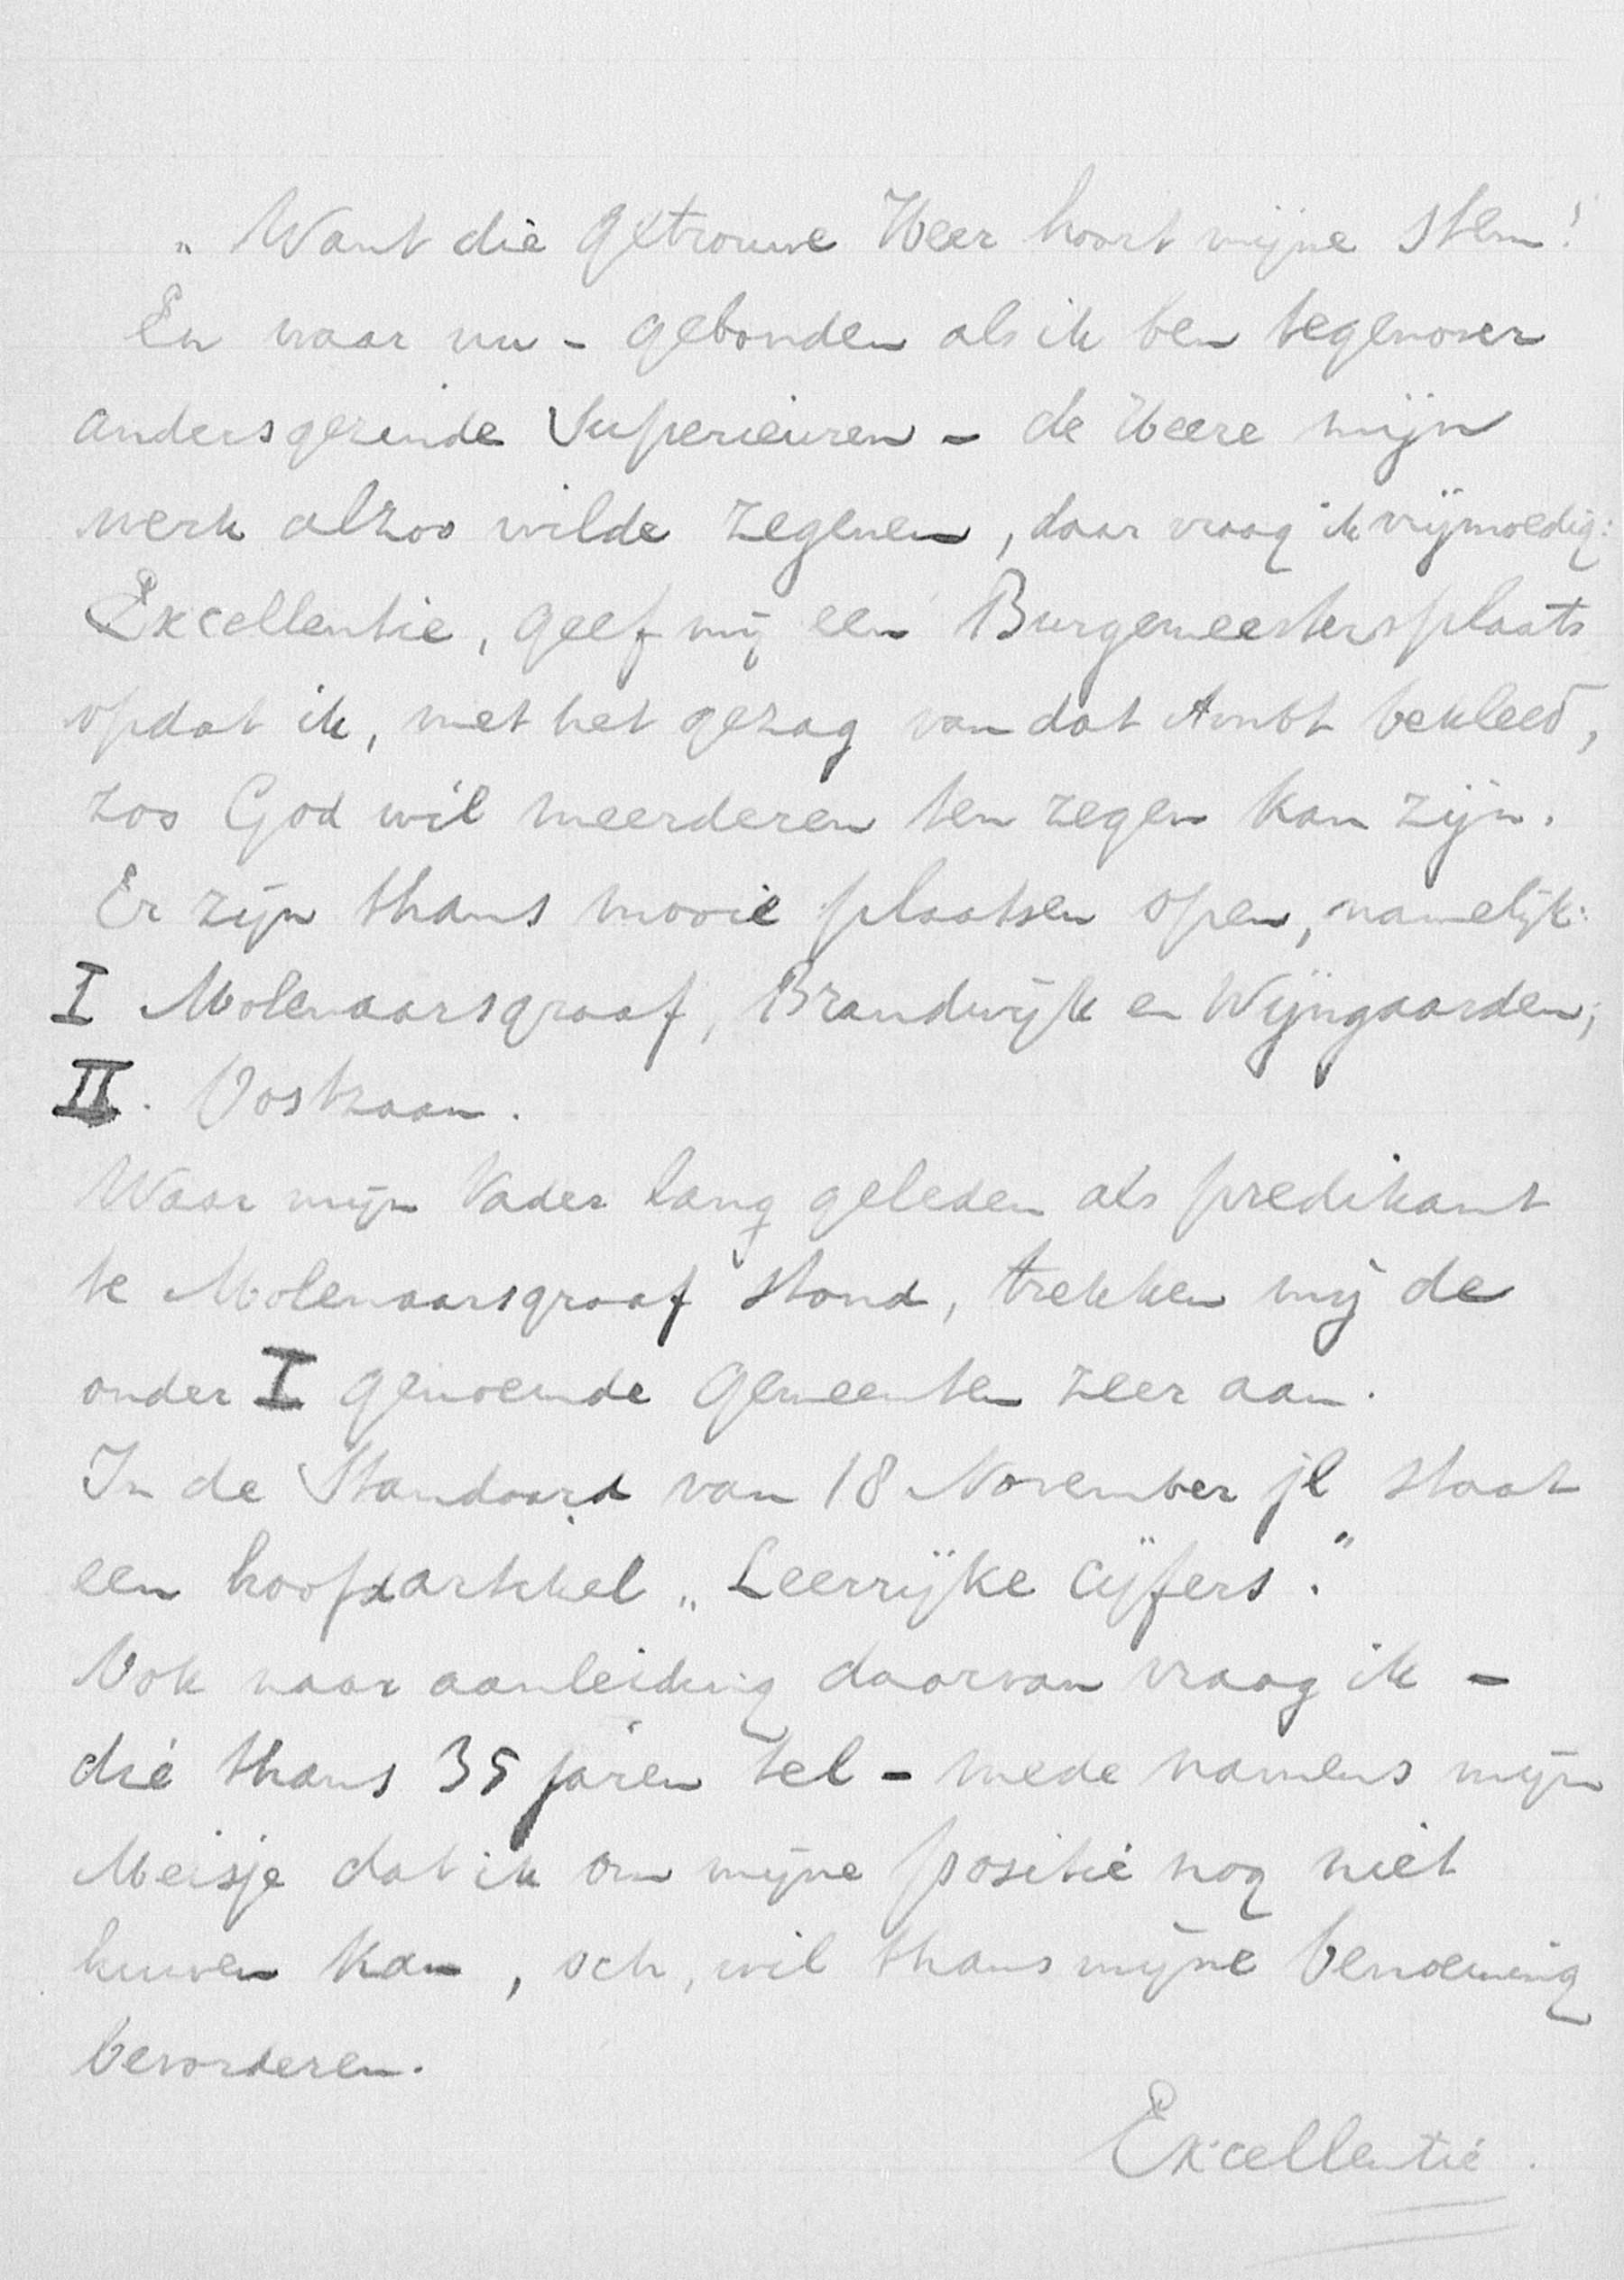 „Want die getrouwe Heer hoort mijne stem!
En waar nu - gebonden als ik ben tegenover
andersgezinde Superieuren - de Heere mijn
werk alzoo wilde zegenen, daar vraag ik vrijmoedig:
Excellentie, geef mij een Burgemeestersplaats
opdat ik, met het gezag van dat Ambt bekleed,
zoo God wil meerderen ten zegen kan zijn.
Er zijn thans mooie plaatsen open, namelijk:
I Molenaarsgraaf, Brandwijk en Wijngaarden;
II. Oostzaan.
Waar mijn Vader lang geleden als predikant
te Molenaarsgraaf stond, trekken mij de
onder I genoemde gemeenten zeer aan.
In de Standaard van 18 November jl staat
een hoofdartikel „Leerrijke cijfers."
Ook naar aanleiding daarvan vraag ik -
die thans 35 jaren tel - mede namens mijn
Meisje dat ik om mijne positie nog niet
huwen kan, och, wil thans mijne benoeming
bevorderen.
Excellentie.